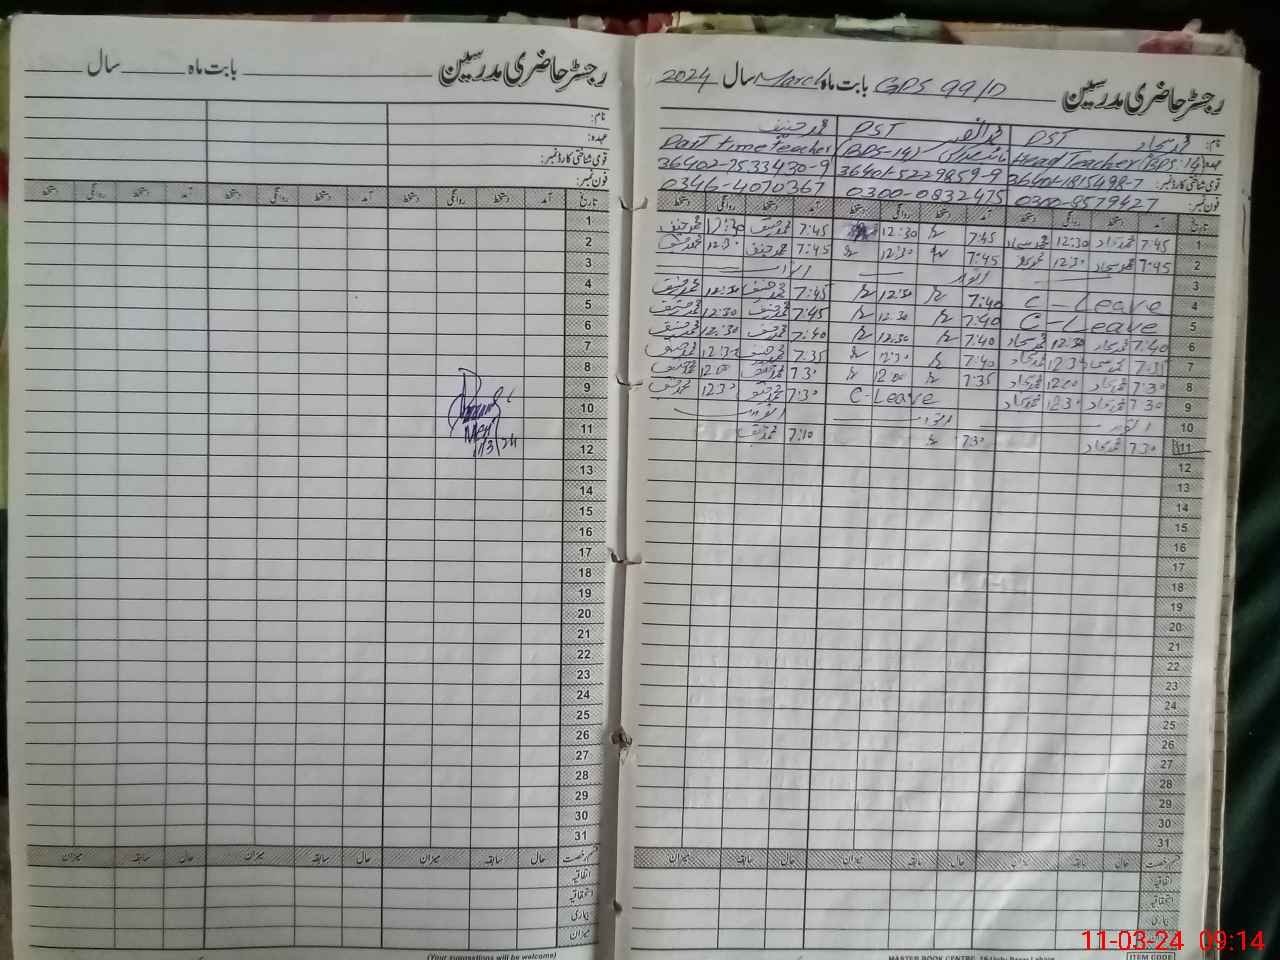 رجسٹر حاضری مدرسین GPS 99/D بابت ماہ March سال 2024
نام: محمد سجاد PST PST محمد حنیف
عہدہ: Head Teacher (BPS-14) (BPS-14) Part time teacher
قومی شناختی کارڈ نمبر: 36401-1815498-7 36401-5229859-9 36402-7533430-9
فون نمبر: 0300-8579427 0300-0832475 0346-4070367
تاریخ آمد دستخط روانگی دستخط آمد دستخط روانگی دستخط آمد دستخط روانگی دستخط
1 7:45 محمد سجاد 12:30 محمد سجاد 7:45 12:30 7:45 محمد حنیف 12:30 محمد حنیف
2 7:45 محمد سجاد 12:30 محمد سجاد 7:45 12:30 7:45 محمد حنیف 12:30 محمد حنیف
3 اتوار
4 C-Leave 7:40 12:30 7:45 محمد حنیف 12:30 محمد حنیف
5 C-Leave 7:40 12:30 7:45 محمد حنیف 12:30 محمد حنیف
6 7:40 محمد سجاد 12:30 محمد سجاد 7:40 12:30 7:40 محمد حنیف 12:30 محمد حنیف
7 7:35 محمد سجاد 12:30 محمد سجاد 7:40 12:30 7:35 محمد حنیف 12:30 محمد حنیف
8 7:30 محمد سجاد 12:00 محمد سجاد 7:35 12:00 7:30 محمد حنیف 12:00 محمد حنیف
9 7:30 محمد سجاد 12:30 محمد سجاد C-Leave 7:30 محمد حنیف 12:30 محمد حنیف
10 اتوار اتوار اتوار
11 7:30 محمد سجاد 7:30 7:10 محمد حنیف
12
13
14
15
16
17
18
19
20
21
22
23
24
25
26
27
28
29
30
31
قسم رخصت حال سابقہ میزان حال سابقہ میزان حال سابقہ میزان
اتفاقیہ
استحقاقیہ
بیماری
میزان
MASTER BOOK CENTRE
ITEM CODE
رجسٹر حاضری مدرسین بابت ماہ سال
نام:
عہدہ:
قومی شناختی کارڈ نمبر:
فون نمبر:
تاریخ آمد دستخط روانگی دستخط آمد دستخط روانگی دستخط آمد دستخط روانگی دستخط
1
2
3
4
5
6
7
8
9
10
11
12
13
14
15
16
17
18
19
20
21
22
23
24
25
26
27
28
29
30
31
قسم رخصت حال سابقہ میزان حال سابقہ میزان حال سابقہ میزان
اتفاقیہ
استحقاقیہ
بیماری
میزان
(Your suggestions will be welcome)
11-03-24 09:14